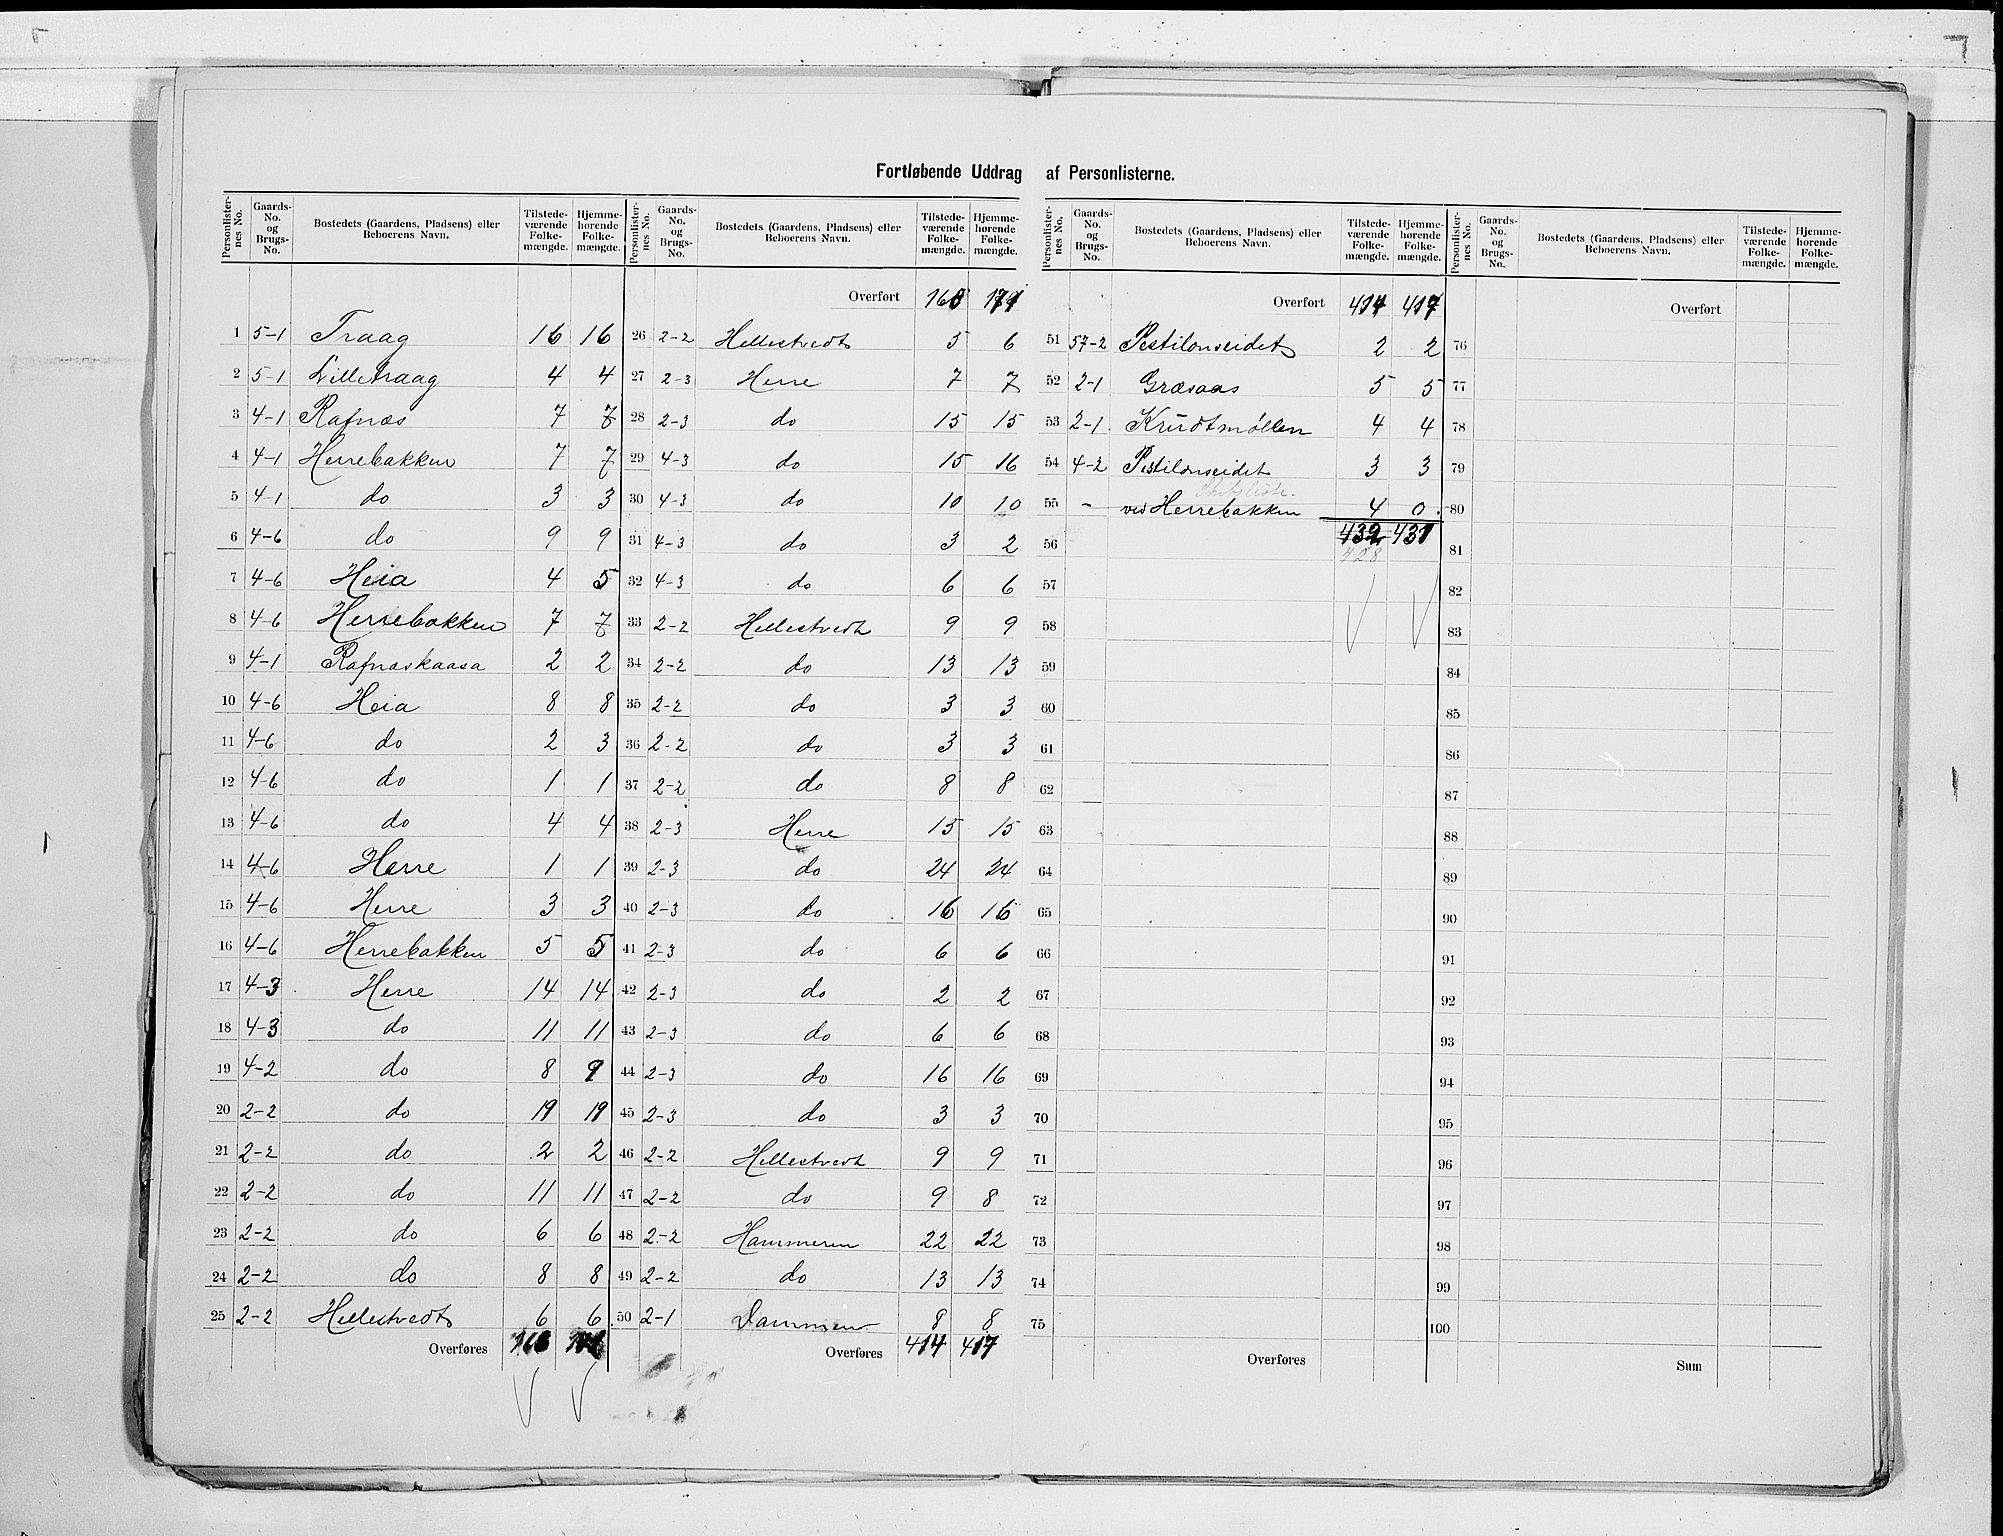 Fortløbende Uddrag af Personlisterne.
Personlister-nes No. Gaards-No. og Brugs-No. Bostedets (Gaardens, Pladsens) eller Beboerens Navn. Tilstede-værende Folke-mængde. Hjemme-hørende Folke-mængde.
1 5-1 Traag 16 16
2 5-1 Lilletraag 4 4
3 4-1 Rafnæs 7 7
4 4-1 Herrebakken 7 7
5 4-1 do 3 3
6 4-6 do 9 9
7 4-6 Heia 4 5
8 4-6 Herrebakken 7 7
9 4-1 Rafnæskaasa 2 2
10 4-6 Heia 8 8
11 4-6 do 2 3
12 4-6 do 1 1
13 4-6 do 4 4
14 4-6 Herre 1 1
15 4-6 Herre 3 3
16 4-6 Herrebakken 5 5
17 4-3 Herre 14 14
18 4-3 do 11 11
19 4-2 do 8 9
20 2-2 do 19 19
21 2-2 do 2 2
22 2-2 do 11 11
23 2-2 do 6 6
24 2-2 do 8 8
25 2-2 Hellestvedt 6 6
Overføres 168 171
Personlister-nes No. Gaards-No. og Brugs-No. Bostedets (Gaardens, Pladsens) eller Beboerens Navn. Tilstede-værende Folke-mængde. Hjemme-hørende Folke-mængde.
Overført 168 171
26 2-2 Hellestvedt 5 6
27 2-3 Herre 7 7
28 2-3 do 15 15
29 4-3 do 15 16
30 4-3 do 10 10
31 4-3 do 3 2
32 4-3 do 6 6
33 2-2 Hellestvedt 9 9
34 2-2 do 13 13
35 2-2 do 3 3
36 2-2 do 3 3
37 2-2 do 8 8
38 2-3 Herre 15 15
39 2-3 do 24 24
40 2-3 do 16 16
41 2-3 do 6 6
42 2-3 do 2 2
43 2-3 do 6 6
44 2-3 do 16 16
45 2-3 do 3 3
46 2-2 Hellestvedt 9 9
47 2-2 do 9 8
48 2-2 Hammeren 22 22
49 2-2 do 13 13
50 2-1 Dammen 8 8
Overføres 414 417
Personlister-nes No. Gaards-No. og Brugs-No. Bostedets (Gaardens, Pladsens) eller Beboerens Navn. Tilstede-værende Folke-mængde. Hjemme-hørende Folke-mængde.
Overført 414 417
51 57-2 Pestilonseidet 2 2
52 2-1 Græsaas 5 5
53 2-1 Krudtmøllen 4 4
54 4-2 Pestilonseidet 3 3
Skibsliste.
55 - ved Herrebakken 4 0
56 432 431
428
57
58
59
60
61
62
63
64
65
66
67
68
69
70
71
72
73
74
75
Overføres
Personlister-nes No. Gaards-No. og Brugs-No. Bostedets (Gaardens, Pladsens) eller Beboerens Navn. Tilstede-værende Folke-mængde. Hjemme-hørende Folke-mængde.
Overført
76
77
78
79
80
81
82
83
84
85
86
87
88
89
90
91
92
93
94
95
96
97
98
99
100
Sum